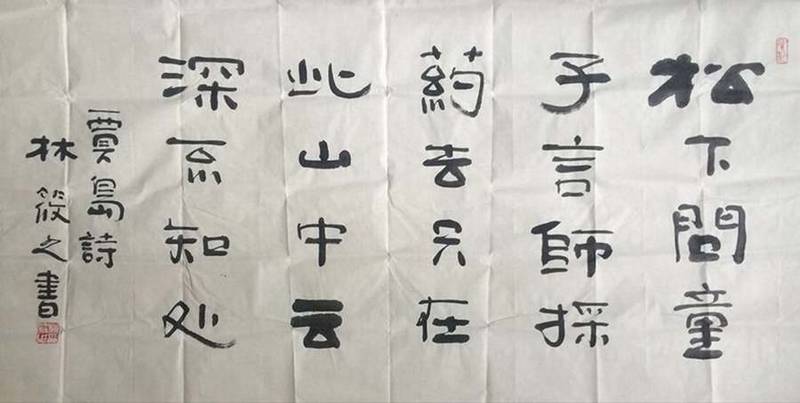 松下問童
子言師採
葯去只在
此山中云
深不知处
賈島詩
林筱之書